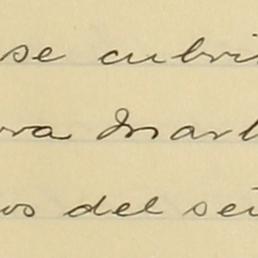 se cubri
ra Mart
os del señ